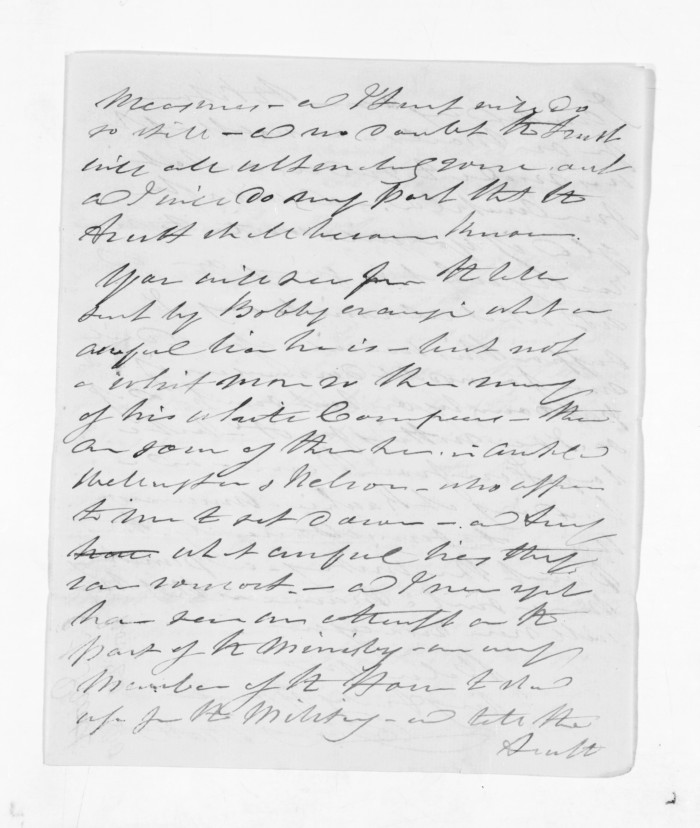 Measures – and I trust will do
so still – and no doubt the truth
will all ultimately come out
and I will do my part that the
Truth shall become known.
You will see from the letter
sent by Bobby what an
awful liar he is – but not
a whit more so than many
of his white Compeers – there
are some of them here in Auckland
Wellington & Nelson – who appear
to me to set down – and
what awful lies they
can concoct – and I never yet
have seen an attempt on the
part of the Ministry – or any
Member of the House to
up for the Military – and tell the
Truth